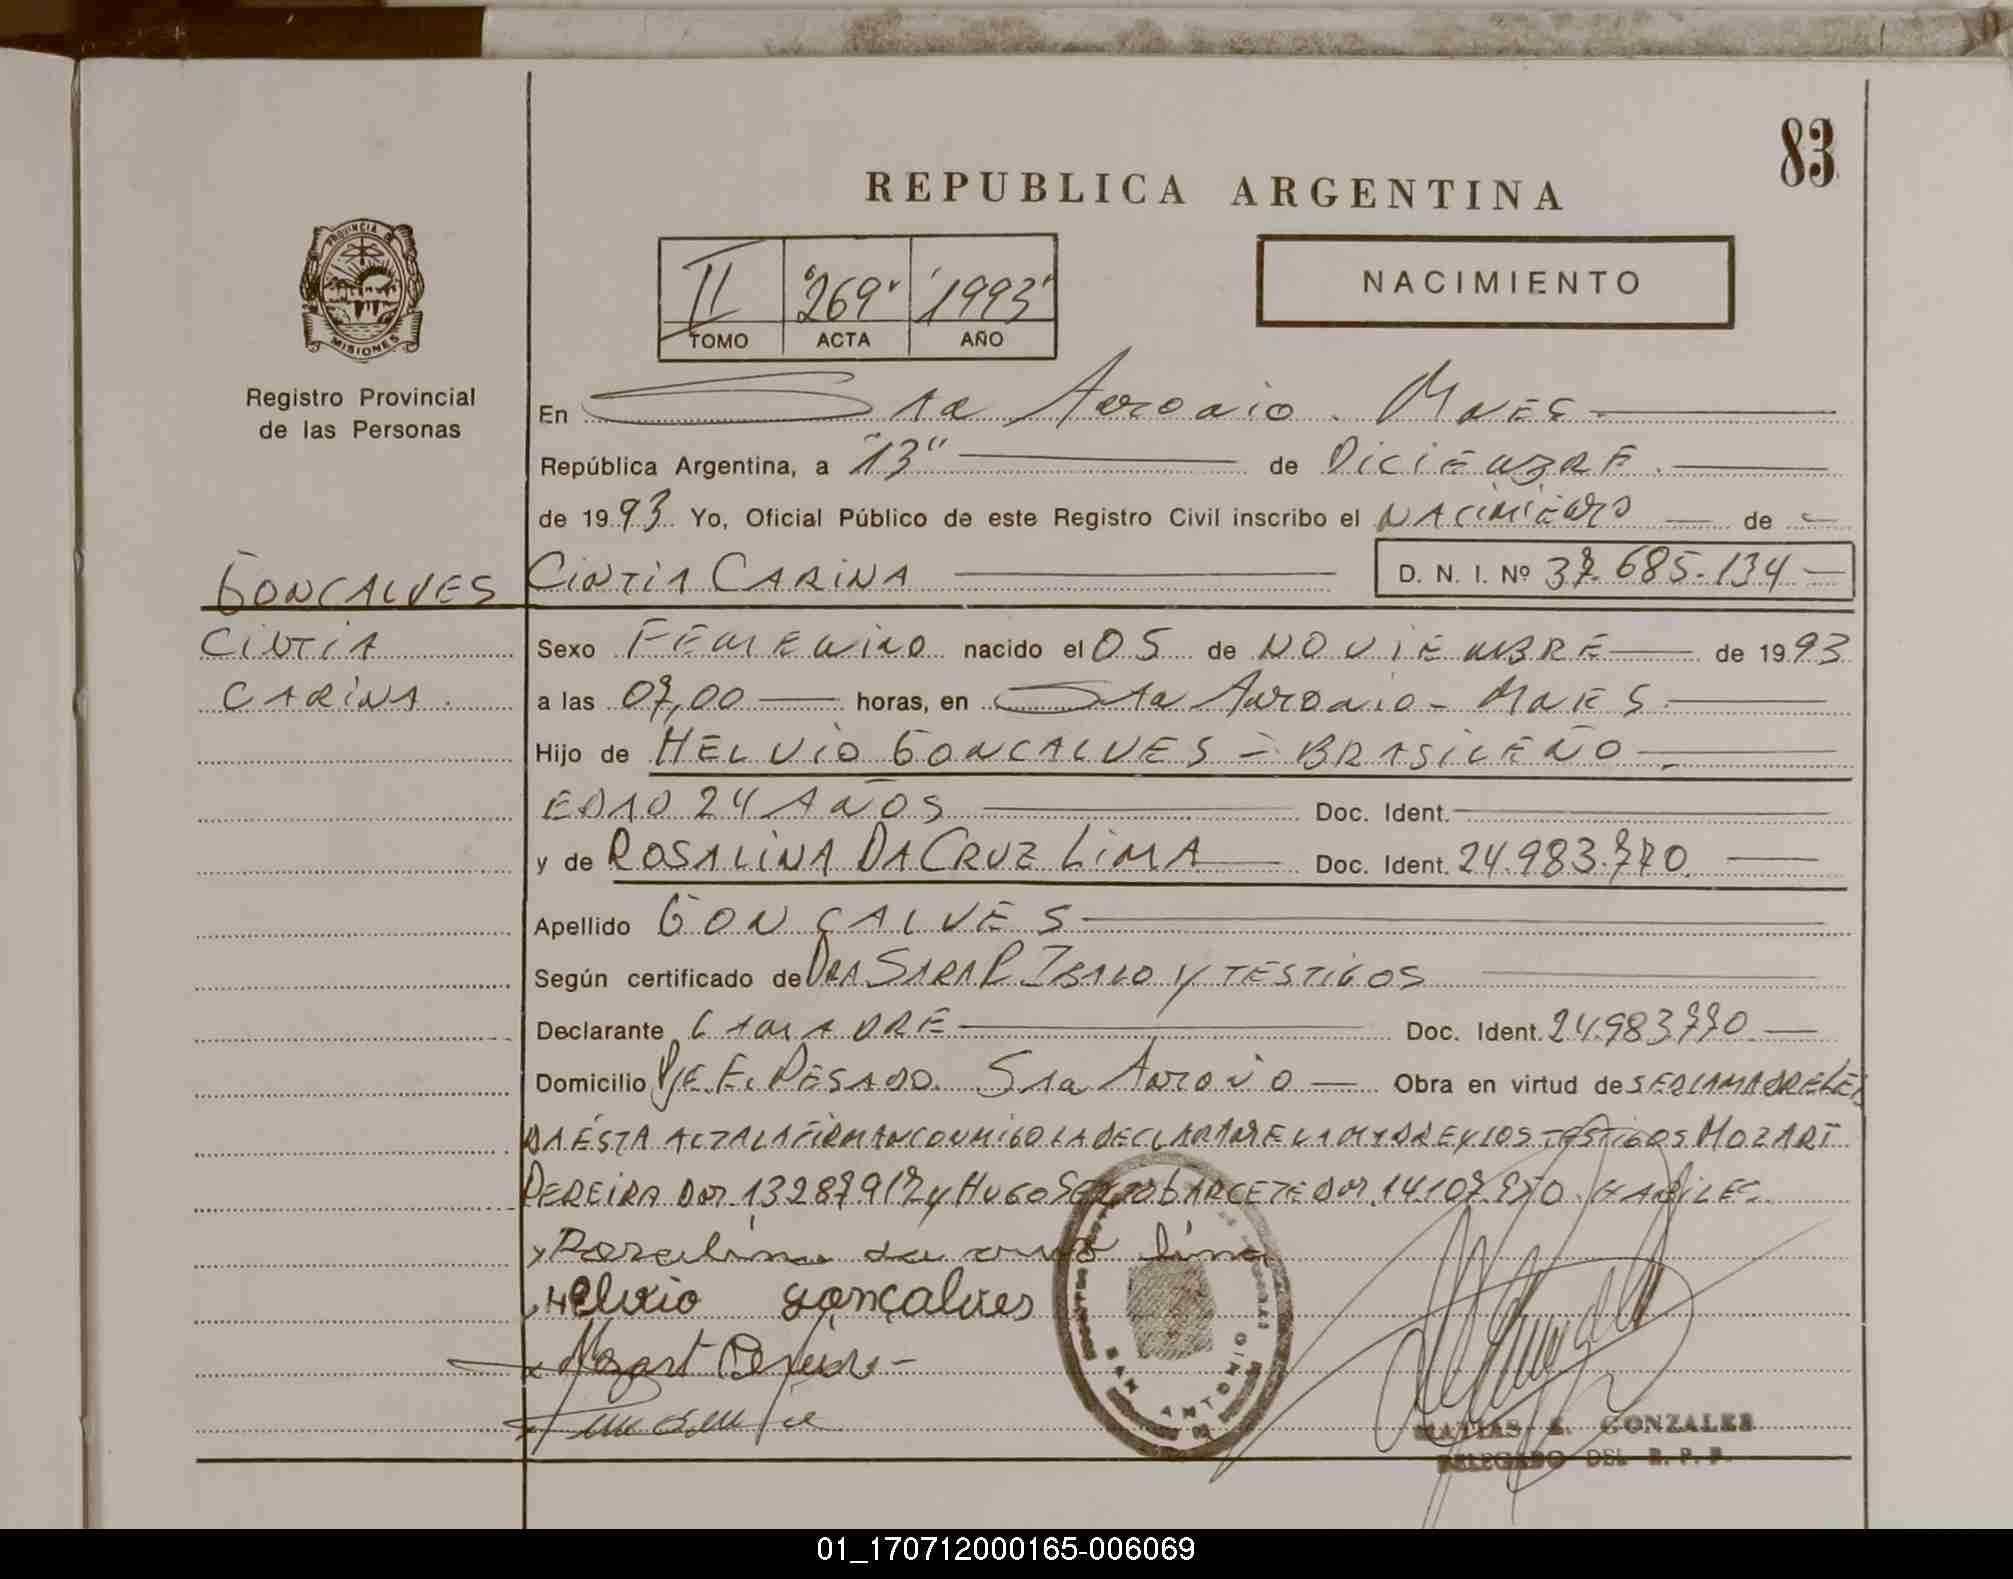 83
REPUBLICA ARGENTINA
PROVINCIA DE
MISIONES
Registro Provincial
de las Personas
II "269" "1993"
TOMO ACTA AÑO
NACIMIENTO
En Sta Antonio. Mnes.
República Argentina, a "13" de DICIEMBRE.
de 1993 Yo, Oficial Público de este Registro Civil inscribo el NACIMIENTO de
GONCALVES CINTIA CARINA D. N. I. Nº 37.685.134
CINTIA
CARINA.
Sexo FEMENINO nacido el 05 de NOVIEMBRE de 1993
a las 07,00 horas, en Sta Antonio - MNES.
Hijo de HELVIO GONCALVES - BRASILEÑO
EDAD 24 AÑOS Doc. Ident.
y de ROSALINA DA CRUZ LIMA Doc. Ident. 24.983.770
Apellido GONCALVES
Según certificado de DRA SARA Y TESTIGOS
Declarante LA MADRE Doc. Ident. 24.983770
Domicilio PJE. E. PESADO. Sta Antonio Obra en virtud de SER LA MADRE LEI
DA ÉSTA ACTA LA FIRMAN CONMIGO LA DECLARANTE LA MADRE Y LOS TESTIGOS MOZART
PEREIRA DNI. 13287917 y HUGO DNI. HABILES
x Rozalina da cruz lima
Helvio gonçalves
x Mozart Pereira
SAN ANTONIO
MATIAS E. GONZALEZ
DELEGADO DEL R. P. P.
01_170712000165-006069